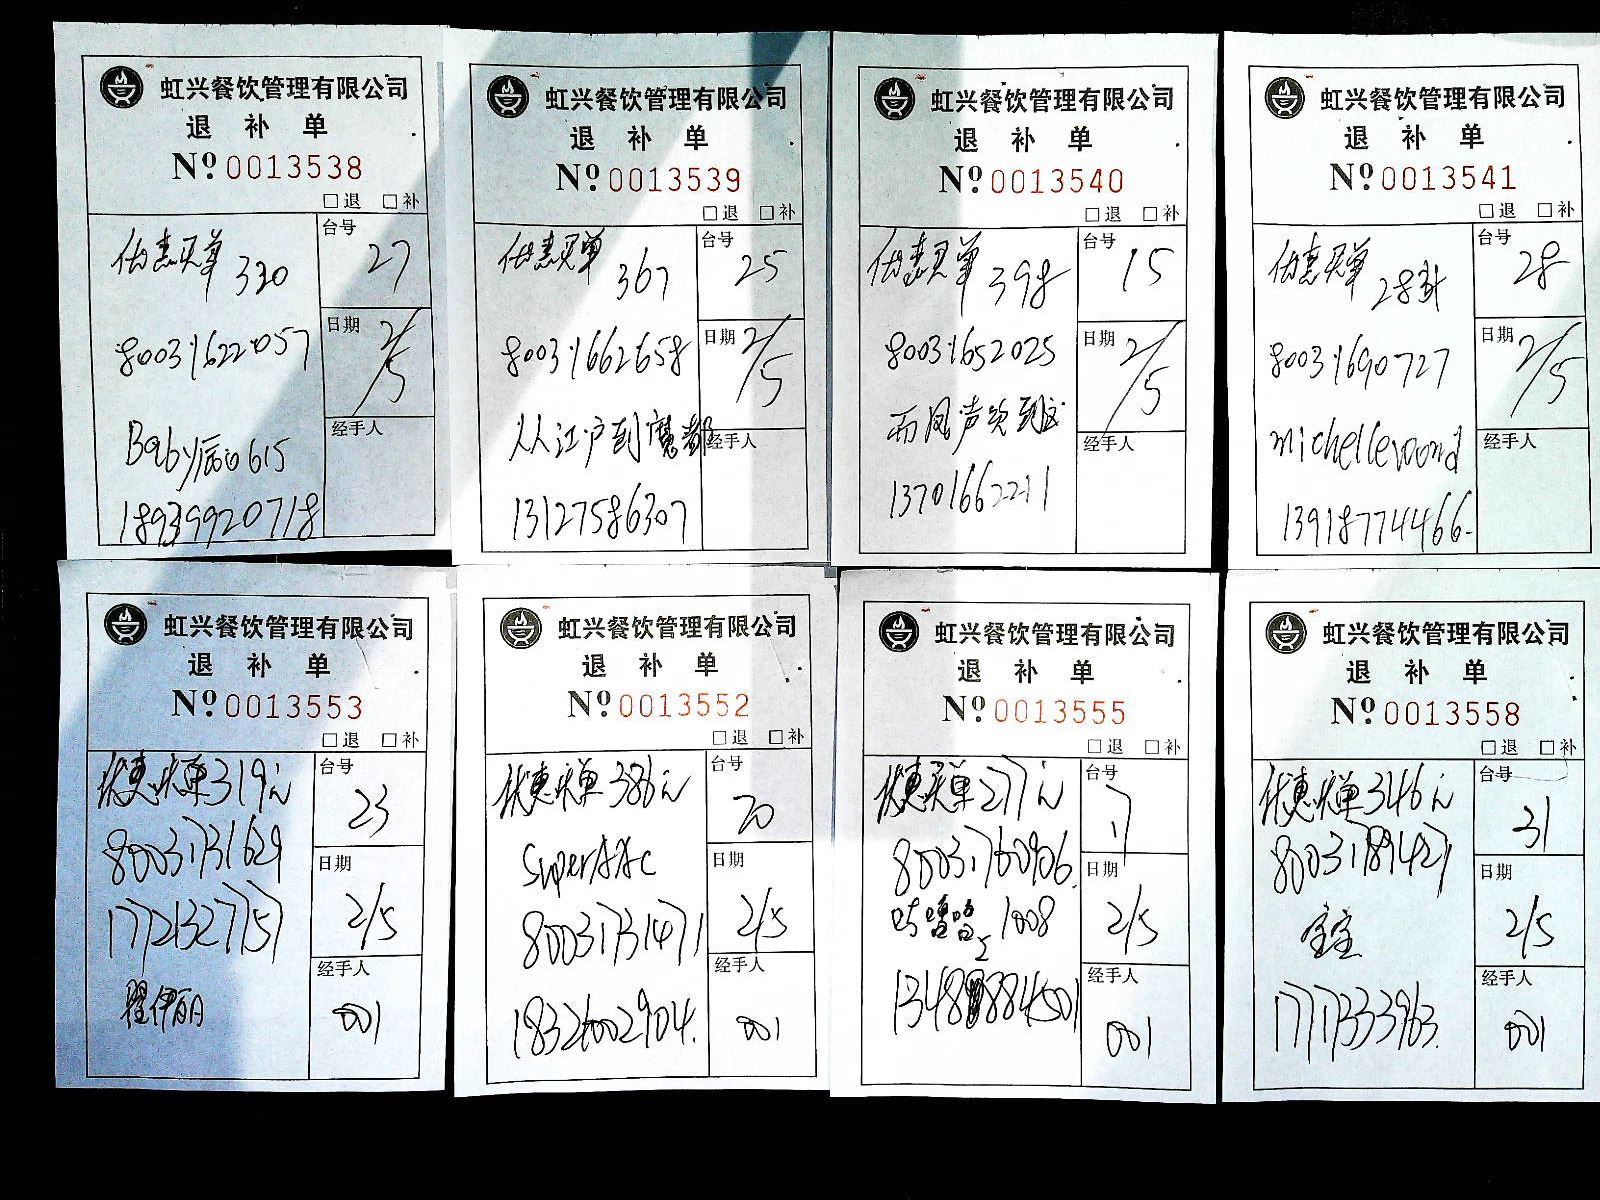 虹兴餐饮管理有限公司
退 补 单
Nº 0013538
□退 □补
优惠买单 330
台号
27
80031622057
日期
2/5
Baby 615
经手人
18939920718
虹兴餐饮管理有限公司
退 补 单
Nº 0013539
□退 □补
优惠买单 367
台号
25
80031662658
日期
2/5
从江沪到魔都
经手人
13127586307
虹兴餐饮管理有限公司
退 补 单
Nº 0013540
□退 □补
优惠买单 398
台号
15
80031652025
日期
2/5
经手人
13701662211
虹兴餐饮管理有限公司
退 补 单
Nº 0013541
□退 □补
优惠买单
台号
28
80031690727
日期
2/5
michellewond
经手人
13918774466.
虹兴餐饮管理有限公司
退 补 单
Nº 0013553
□退 □补
优惠买单319元
台号
23
80031731629
日期
2/5
17721327757
经手人
001
翟伊
虹兴餐饮管理有限公司
退 补 单
Nº 0013552
□退 □补
优惠买单386元
台号
20
SuperAAC
日期
2/5
80031731471
经手人
001
18326002904.
虹兴餐饮管理有限公司
退 补 单
Nº 0013555
□退 □补
优惠买单277元
台号
17
80031760906.
日期
2/5
1008
经手人
001
虹兴餐饮管理有限公司
退 补 单
Nº 0013558
□退 □补
优惠买单346元
台号
31
80031789427
日期
2/5
宝宝
经手人
001
17717333963.